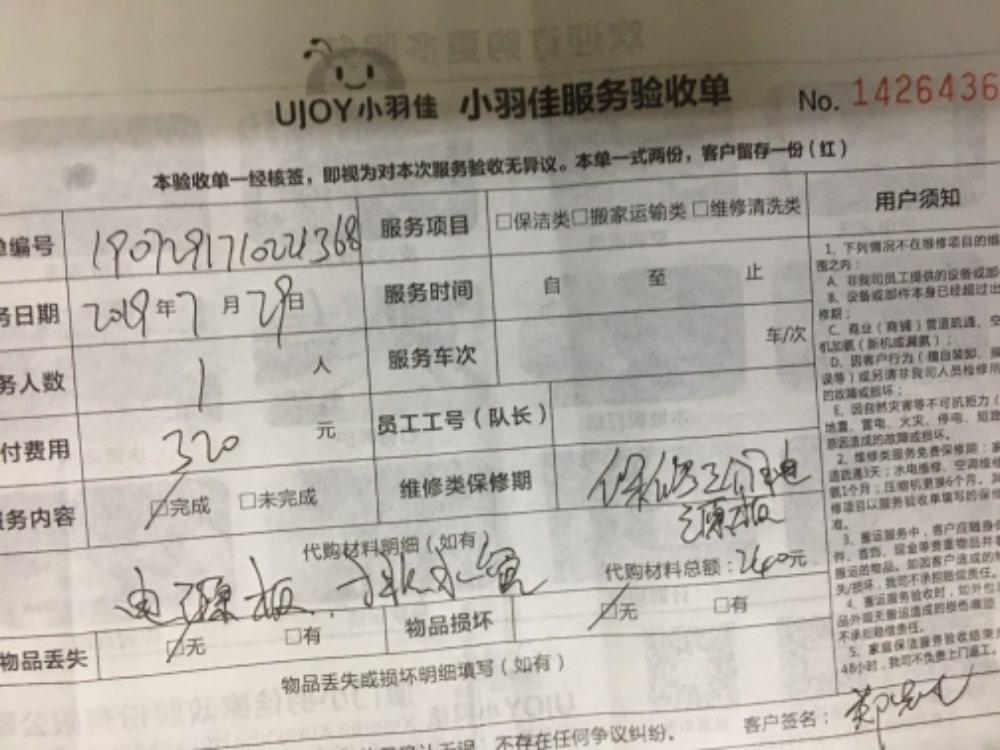 UJOY小羽佳 小羽佳服务验收单 No. 1426436
本验收单一经核签，即视为对本次服务验收无异议。本单一式两份，客户留存一份（红）
单编号 1907291710221368 服务项目 □保洁类□搬家运输类 □维修清洗类
务日期 2019年7月29日 服务时间 自 至 止
务人数 1 人 服务车次 车/次
付费用 320 元 员工工号（队长）
服务内容 □完成 □未完成 维修类保修期 保修三个月电
源板
代购材料明细（如有）
电源板.排水管 代购材料总额：240元
物品丢失 □无 □有 物品损坏 □无 □有
物品丢失或损坏明细填写（如有）
不存在任何争议纠纷。 客户签名：
用户须知
1、下列情况不在维修项目的维
围之内：
A、非我司员工提供的设备或部
B、设备或部件本身已经超过出
修期；
C、商业（商铺）管道疏通、空
机加氨（新机或漏氨）；
D、因客户行为（擅自装卸、操
误等）或另请非我司人员检修所
的故障或损坏；
E、因自然灾害等不可抗拒力（
地震、雷电、火灾、停电、短路
原因造成的故障或损坏。
2、维修类服务免费保修期：家
道疏通3天；水电维修、空调维
氨1个月；压缩机更换6个月。其
修项目以服务验收单填写的保修
准。
3、搬运服务中，客户应随身
件、首饰、现金等贵重物品并
搬运的物品。如因客户造成的
失/损坏，我司不承担赔偿责任。
4、搬运服务验收时，如外包
品外观无搬运造成的损伤痕迹
不承担赔偿责任。
5、家庭保洁服务验收结束
48小时，我司不负责上门返工。